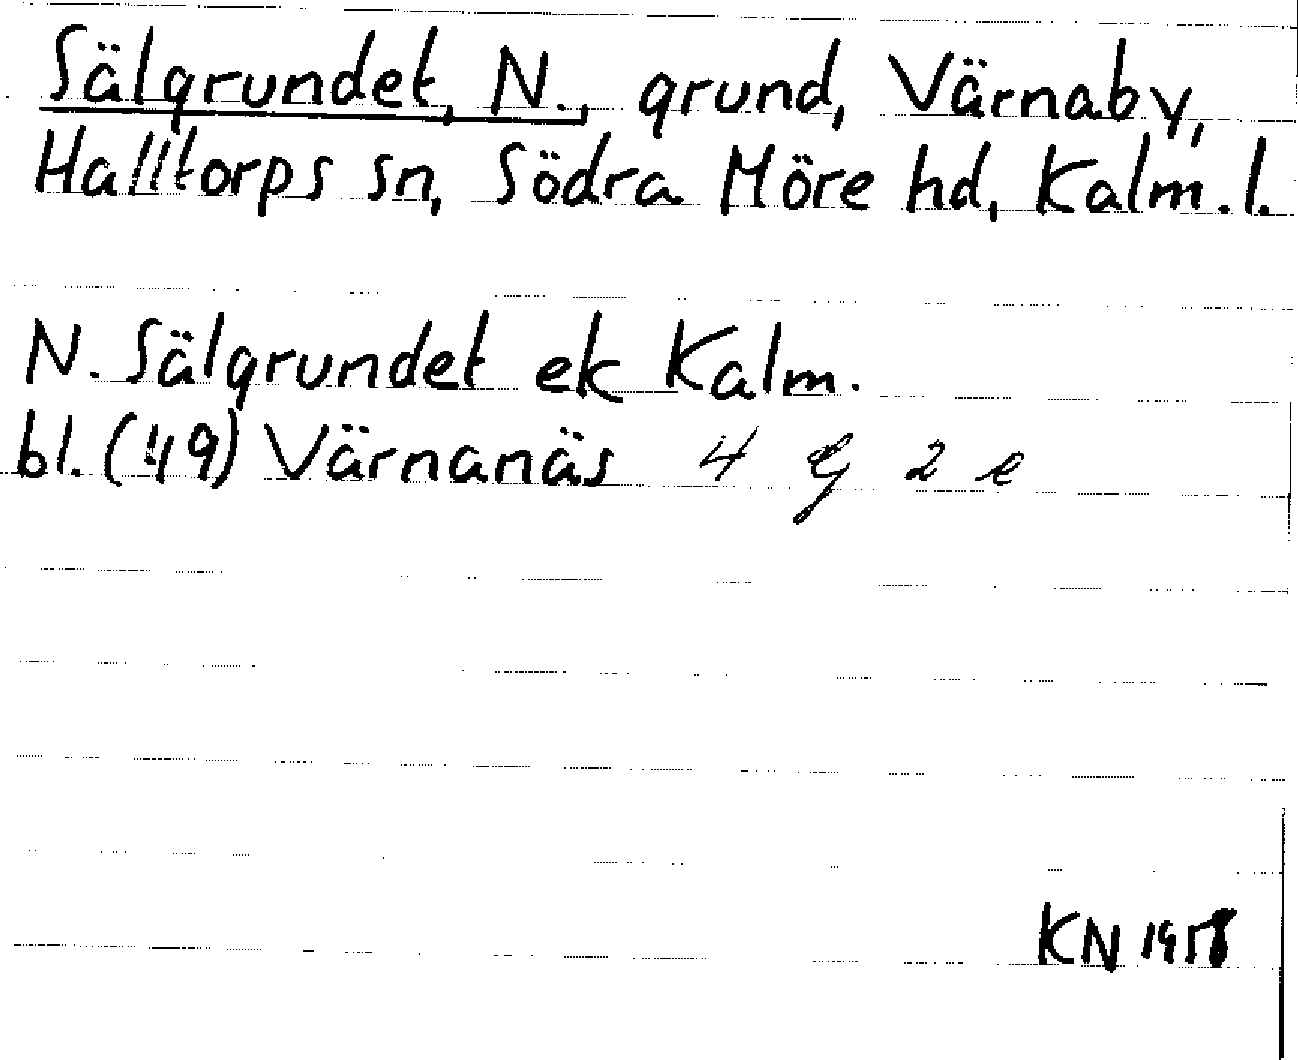 Sälgrundet, N., grund, Värnaby,
Halltorps sn, Södra Möre hd, Kalm. l.
N. Sälgrundet ek Kalm.
bl. (49) Värnanäs 4 G 2 e
KN 1958